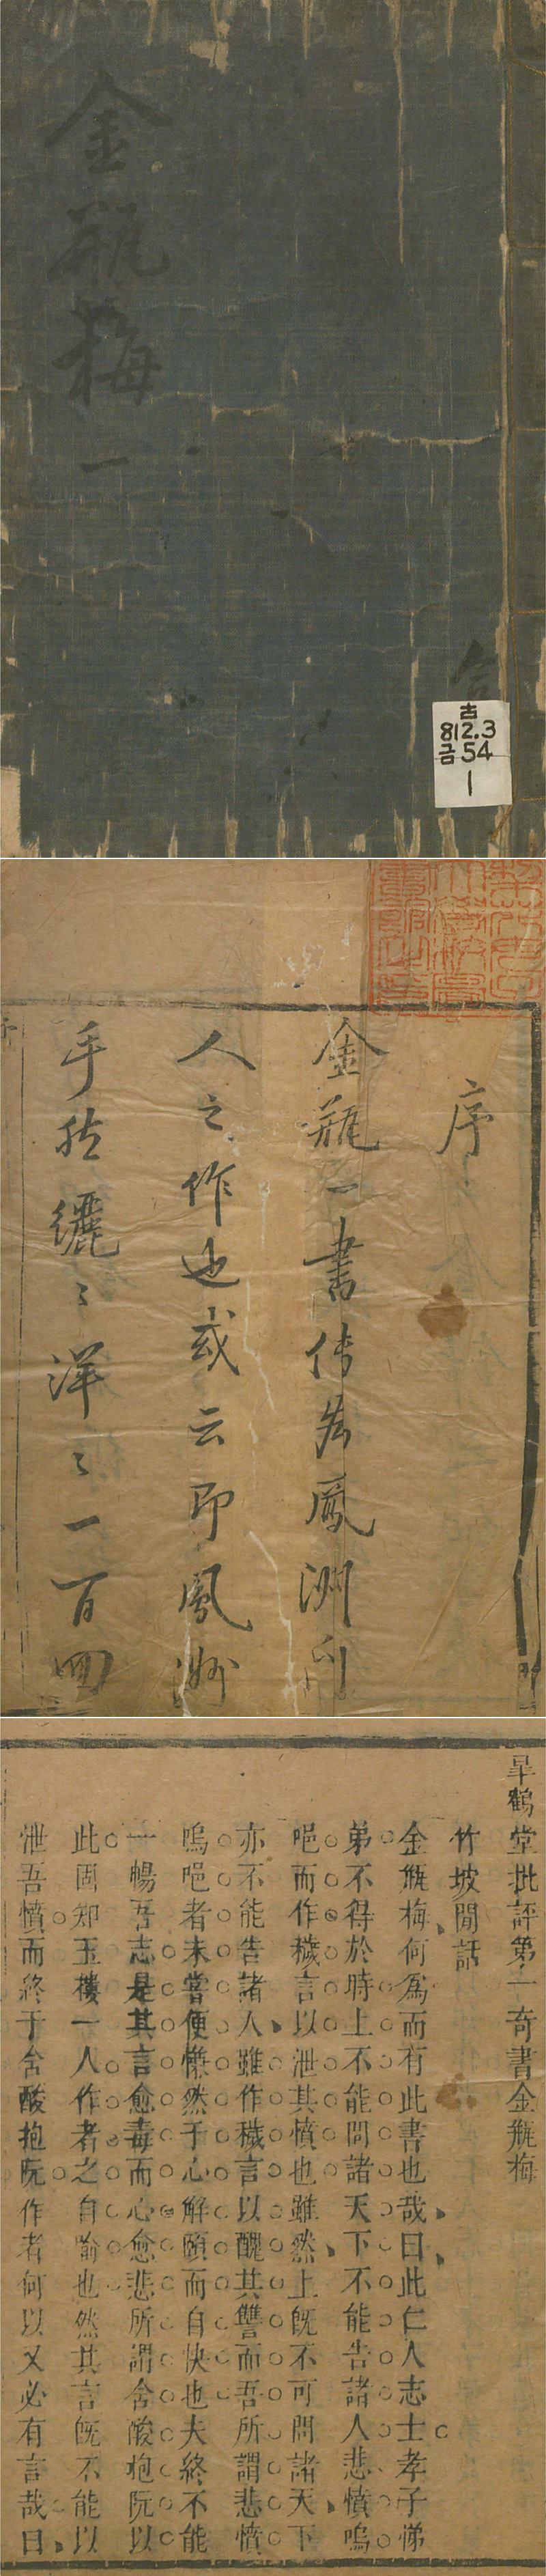 金瓶梅 一
古
812.3
금54
1
序
金瓶一書传为鳳洲门
人之作也或云即鳳洲
手然纚〻洋〻一百四
皐鶴堂批評第一奇書金瓶梅
竹坡閒話
金瓶梅何爲而有此書也哉曰此仁人志士孝子悌
弟不得於時上不能問諸天下不能告諸人悲憤嗚
唈而作穢言以泄其憤也雖然上既不可問諸天下
亦不能告諸人雖作穢言以醜其讐而吾所謂悲憤
嗚唈者未嘗便慊然于心解頤而自快也夫終不能
一暢吾志是其言愈毒而心愈悲所謂含酸抱阮以
此固知玉樓一人作者之自喻也然其言既不能以
泄吾憤而終于含酸抱阮作者何以又必有言哉曰